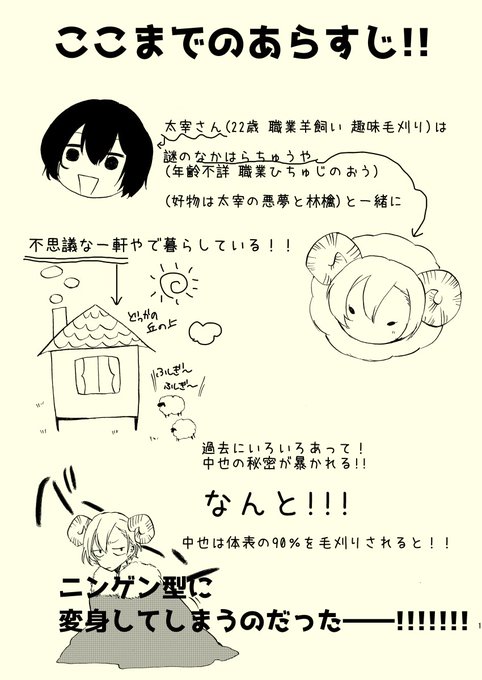 ここまでのあらすじ!!
太宰さん(22歳 職業羊飼い 趣味毛刈り)は
謎のなかはらちゅうや
(年齢不詳 職業ひちゅじのおう)
(好物は太宰の悪夢と林檎)と一緒に
不思議な一軒やで暮らしている!!
どっかの
丘の上
ふしぎ〜
ふしぎ〜
過去にいろいろあって!
中也の秘密が暴かれる!!
なんと!!!
バーン
中也は体表の90%を毛刈りされると!!
ニンゲン型に
変身してしまうのだった――!!!!!!!
1